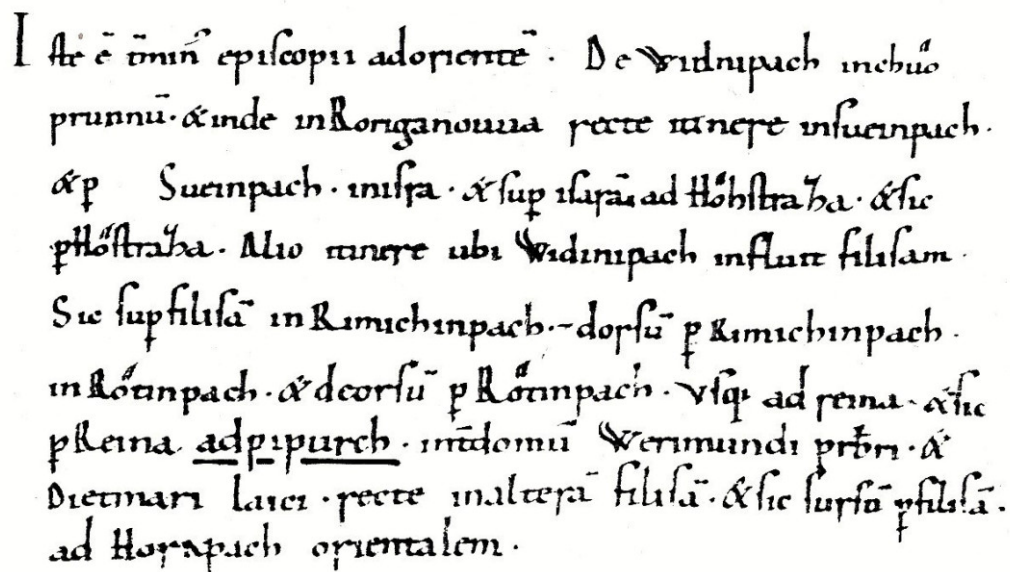 Iste ē t̄minꝰ episcopii adorientē · De Widnipach inchuͦ
prunnū · &inde inRoriganouuua recte itinere insueinpach ·
&ꝑ Sueinpach · inisra · &suꝑ isarā ad Hoͦhstrazha · &sic
ꝑHoͦstrazha · Alio itinere ubi Widinipach influit filisam ·
Sic suꝑfilisā inRimichinpach · dorsū ꝑ Rimichinpach ·
inRoͦtinpach · &deorsū ꝑ Roͦtinpach · Vsqꝫ ad reina · &sic
ꝑReina adpipurch · int̄domū Werimundi prb̄ri · &
Dietmari laici · recte inalterā filisā · &sic sursū ꝑfilisā ·
ad Hornpach orientalem ·